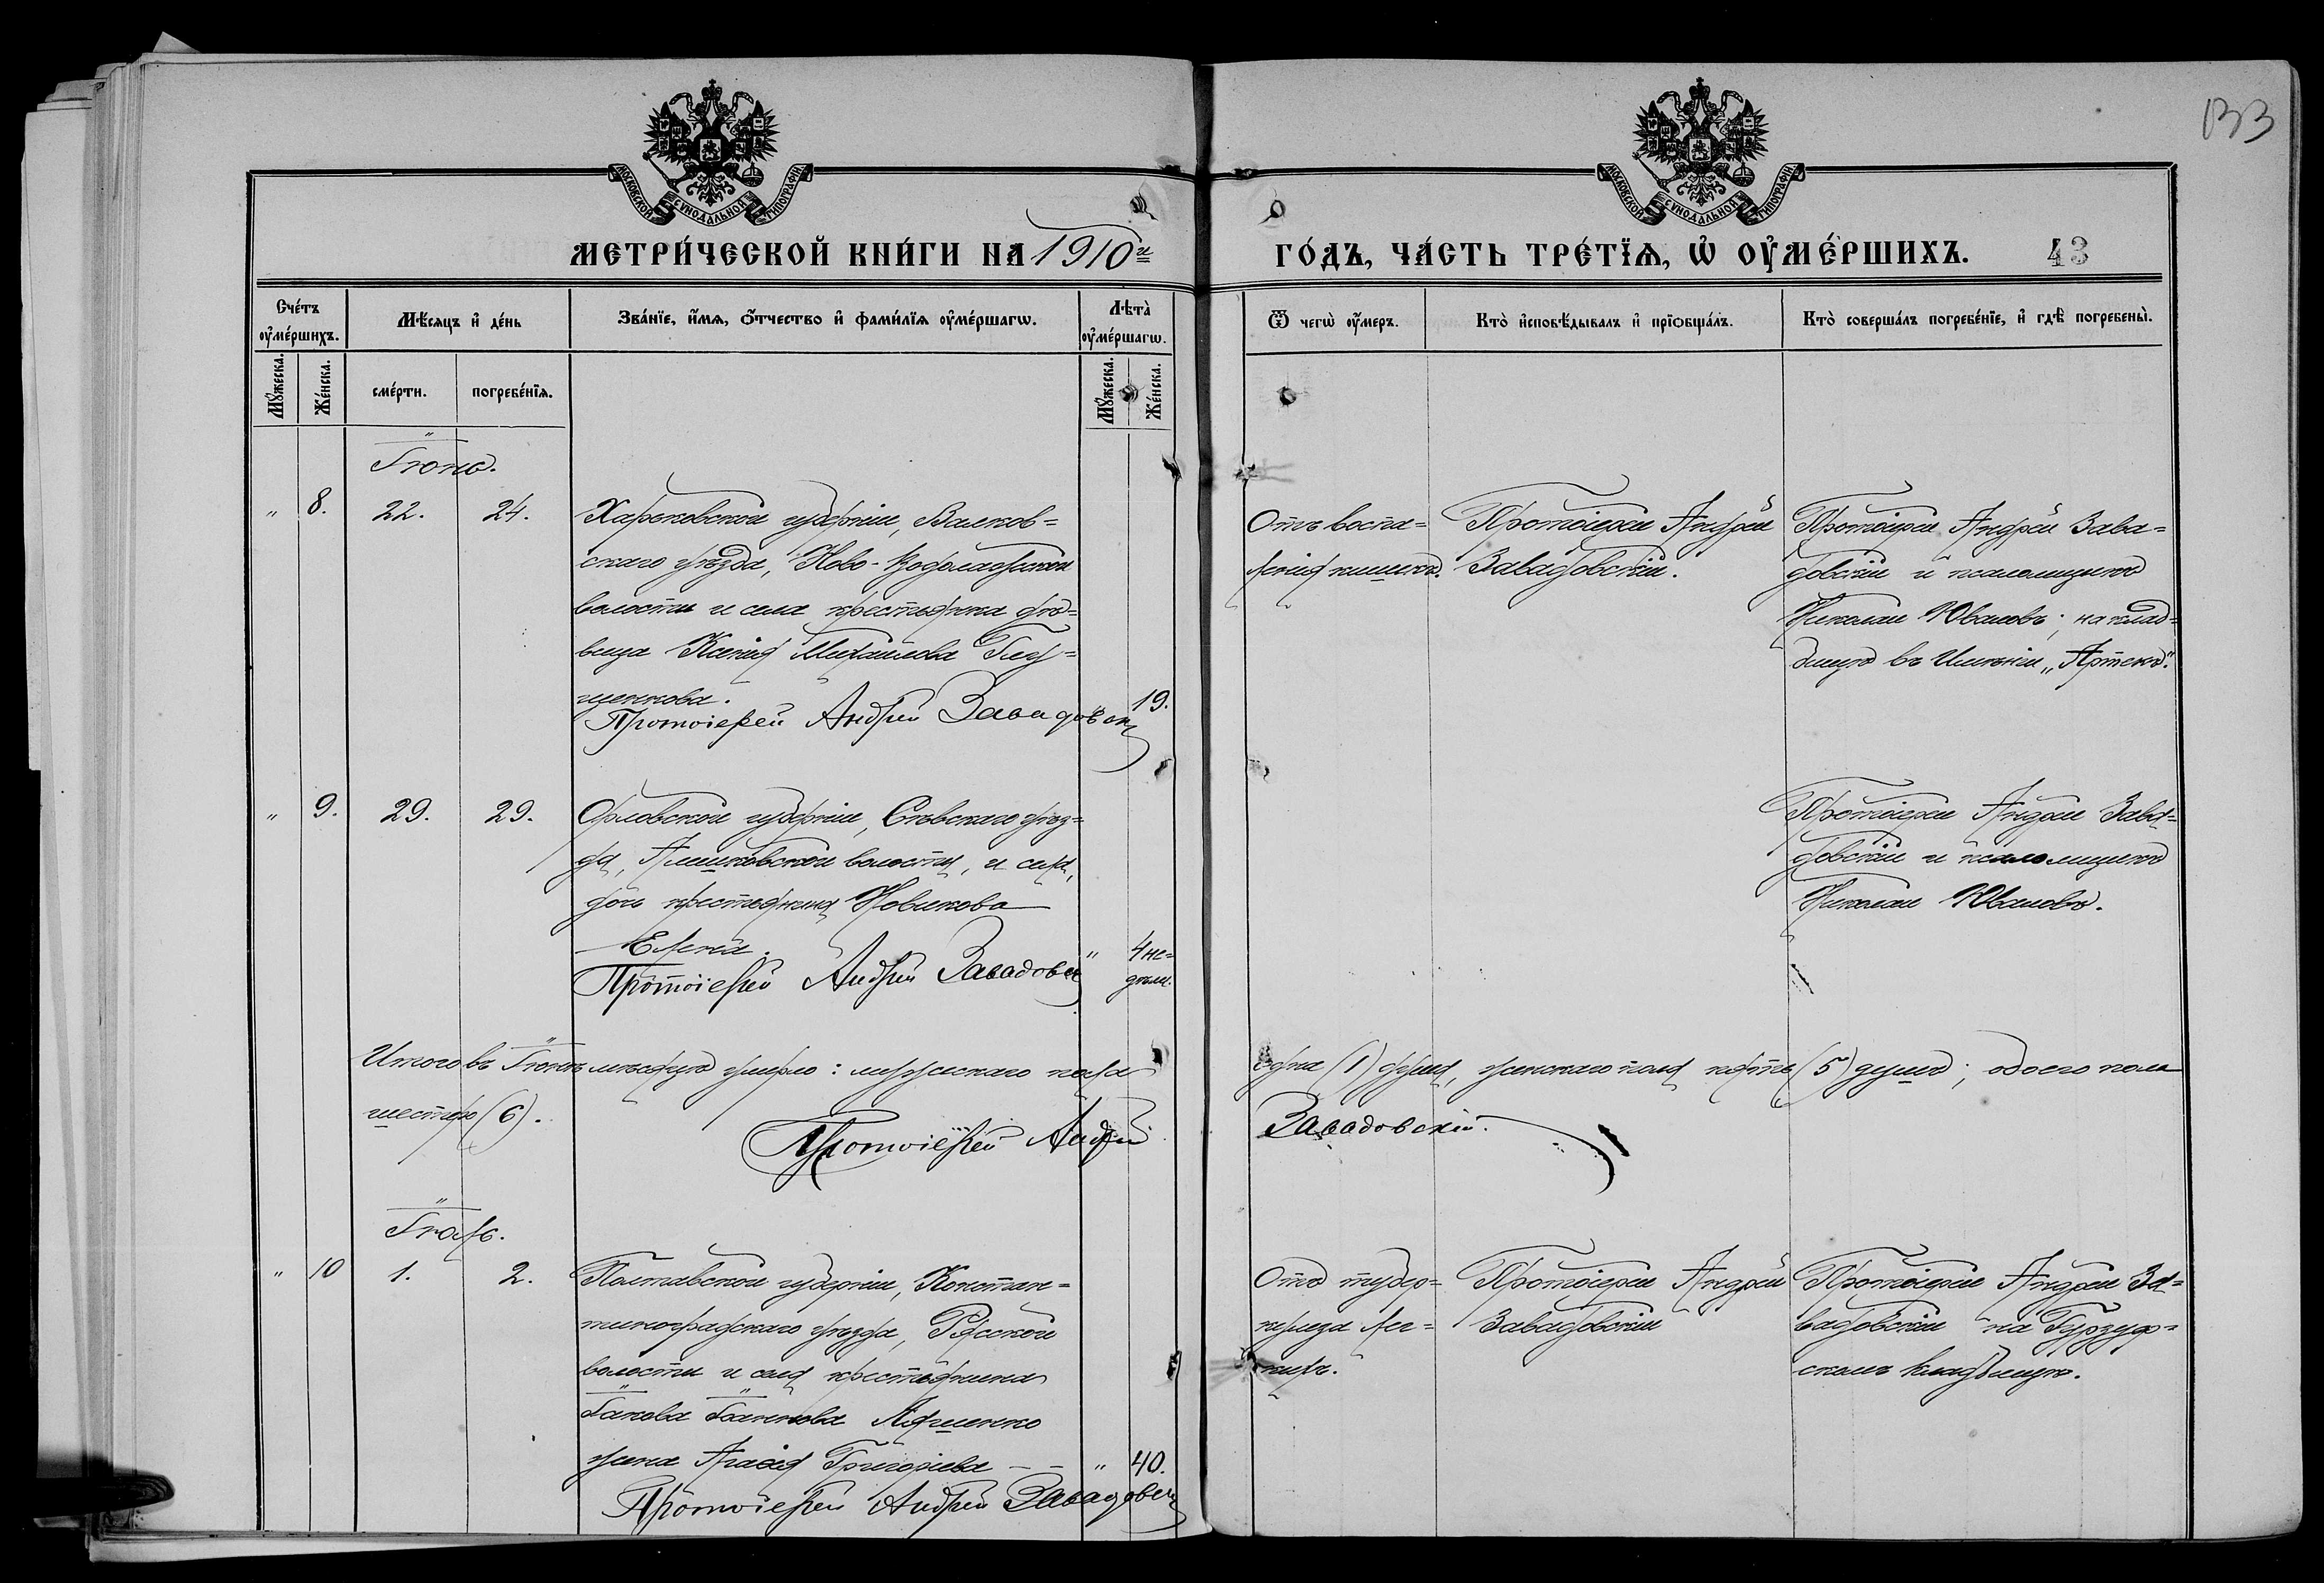 133
МОСКОВСКОЙ СѴНОДАЛЬНОЙ ТИПОГРАФІИ.
МОСКОВСКОЙ СѴНОДАЛЬНОЙ ТИПОГРАФІИ.
МЕТРИ́ЧЕСКОЙ КНИ́ГИ НА 1910й
ГО́ДЪ, ЧА́СТЬ ТРЕ́ТЇѦ, Ѡ҆ ОУ҆МЕ́РШИХЪ. 43
Сче́тъ оу҆ме́ршихъ.
Мꙋ́жеска. Же́нска.
Мѣ́сѧцъ и҆ де́нь
сме́рти. погребе́нїѧ.
Зва́нїе, и҆́мѧ, ѻ҆́тчество и҆ фами́лїѧ оу҆ме́ршагѡ.
Лѣ̑та̀ оу҆ме́ршагѡ.
Мꙋ́жеска. Же́нска.
Ѿ чегѡ̀ оу҆́меръ.
Кто̀ и҆сповѣ́дывалъ и҆ прїѡбща́лъ.
Кто̀ соверша́лъ погребе́нїе, и҆ гдѣ̀ погребены̀.
Іюнь.
" 8. 22. 24.
Харьковской губерніи, Валков=
скаго уѣзда, Ново-Водолажской
волости и села крестьянка дѣ=
вица Ксенія Михаилова
щенкова. " 19.
Протоіерей Андрей Завадовскій
Отъ воспа=
ленія кишекъ.
Протоіерей Андрей
Завадовскій.
Протоіерей Андрей Зава=
довскій и псаломщикъ
Николай Ювановъ; на клад=
бищѣ въ Имѣніи „Артекъ".
" 9. 29. 29.
Орловской губерніи, Сѣвскаго уѣз=
да, волости, и села,
дочь крестьянина Новикова
Елена. " 4 не=
дѣли.
Протоіерей Андрей Завадовскій
Протоіерей Андрей Зава=
довскій и псаломщикъ
Николай Ювановъ.
Итого въ Іюнѣ мѣсяцѣ умерло: мужескаго пола одна (1) душа, женскаго пола пять (5) душъ; обоего пола
шестеро (6).
Протоіерей Андрей Завадовскій.
Іюль.
" 10 1. 2.
Полтавской губерніи, Констан=
тиноградскаго уѣзда, Ряской
волости и села крестьянина
Іакова Іаннова Ляшенко
жена Агаѳія Григоріева — — " 40.
Протоіерей Андрей Завадовскій
Отъ тубер=
кулеза лег=
кихъ.
Протоіерей Андрей
Завадовскій
Протоіерей Андрей За=
вадовскій на Гурзуф=
скомъ кладбищѣ.